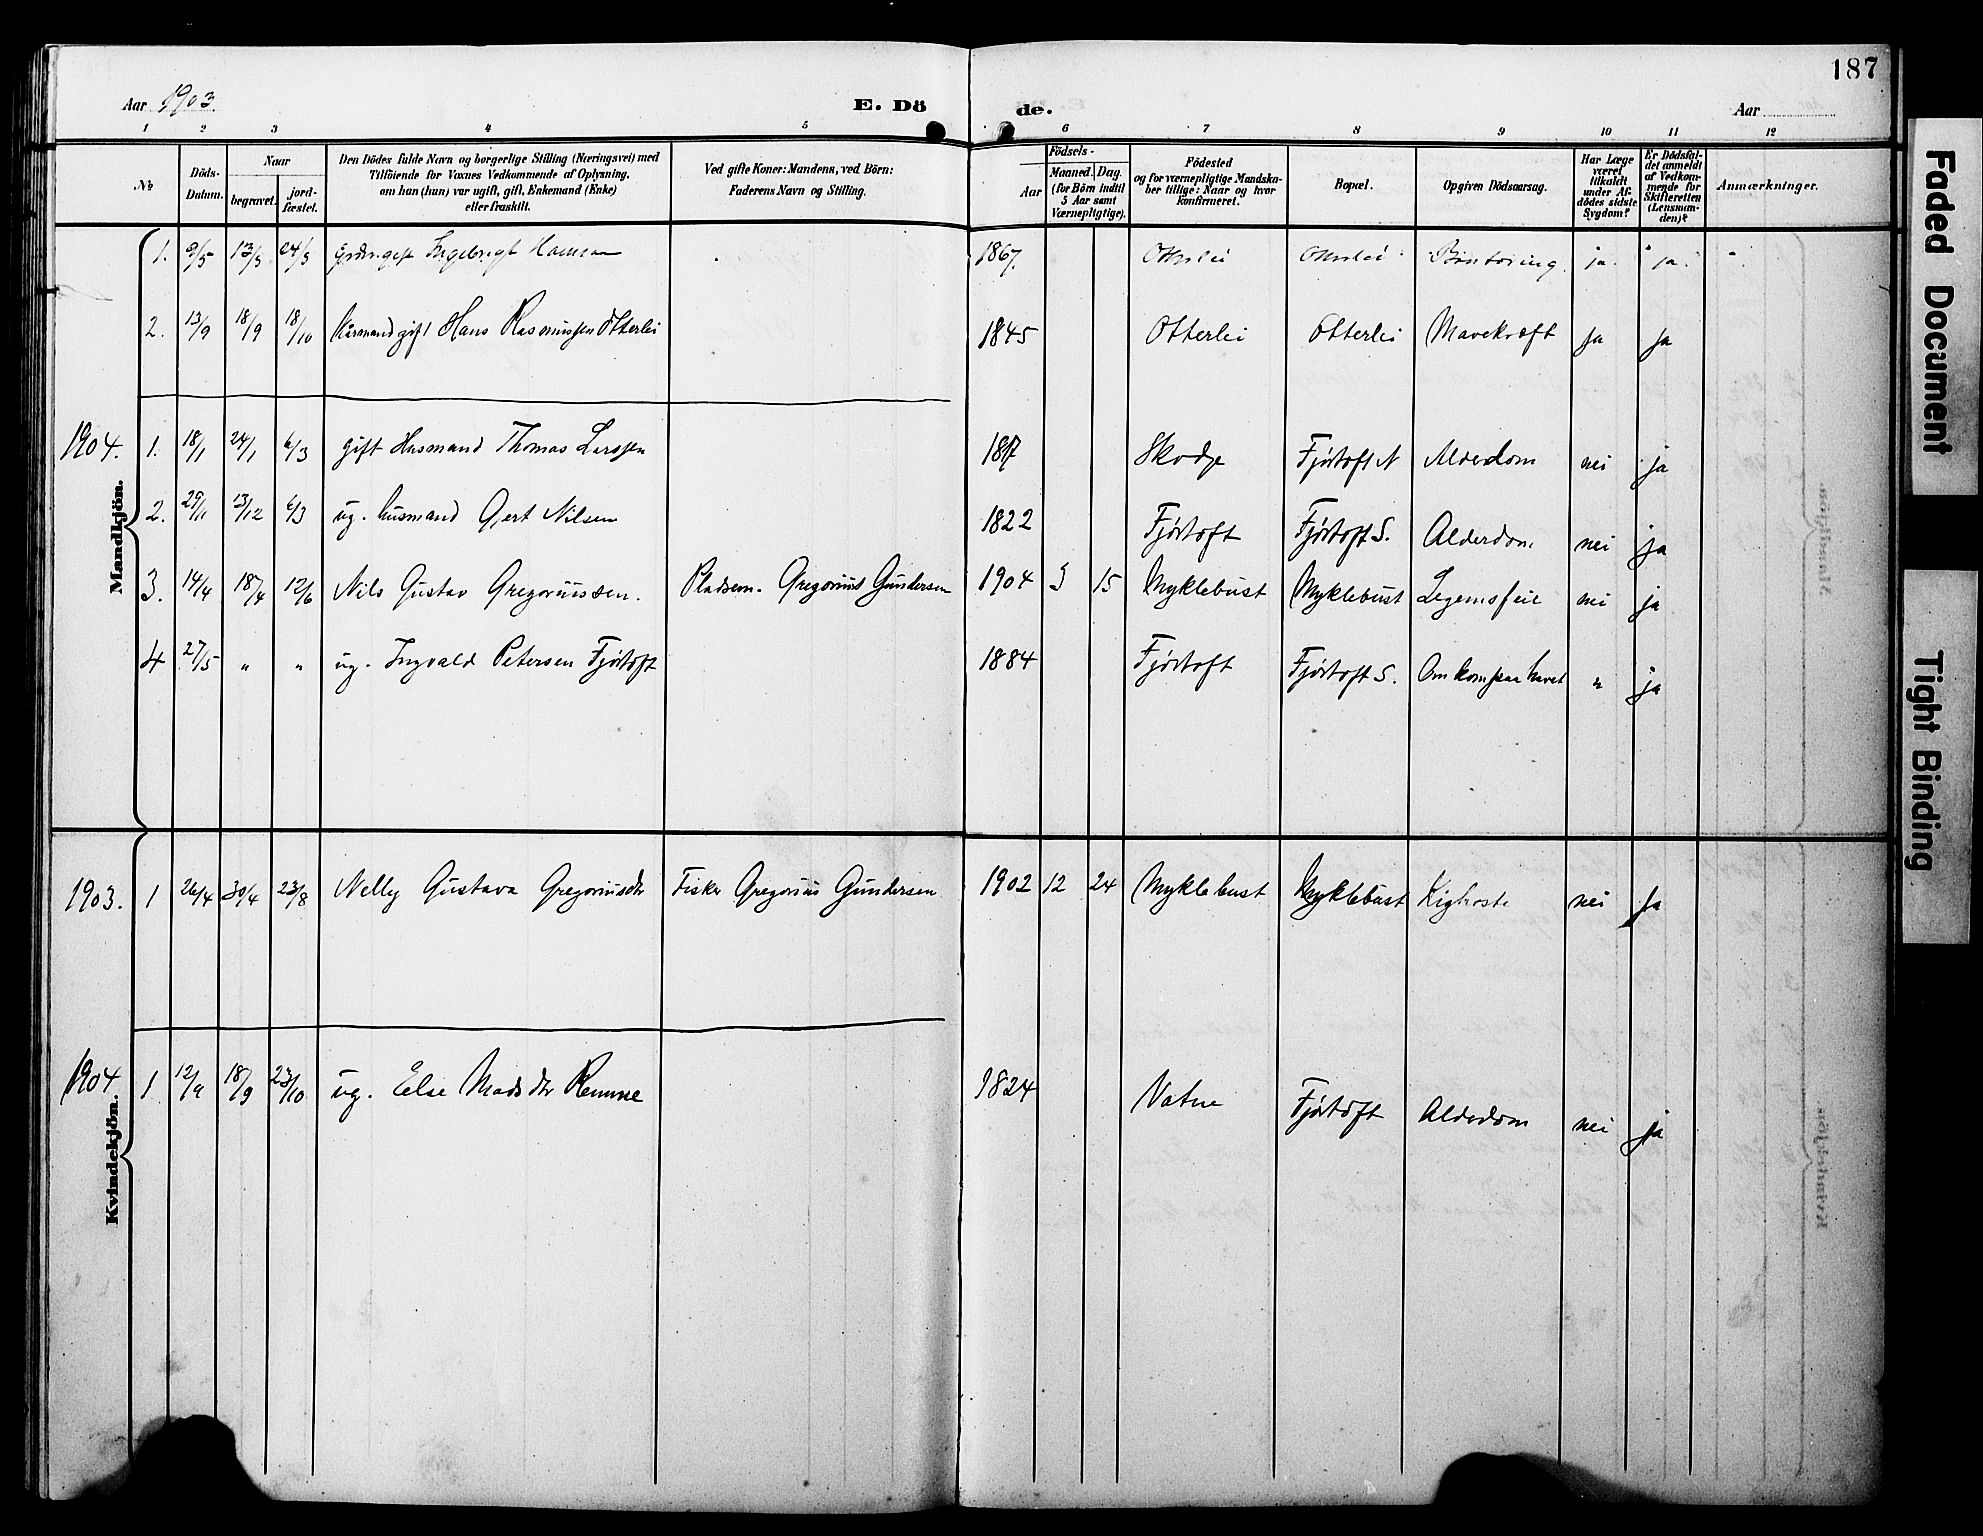 187
Aar 1903. E. Dö de. Aar
1 2 3 4 5 6 7 8 9 10 11 12
No
Döds-Datum.
Naar
begravet.
jord-fæstet.
Den Dödes fulde Navn og borgerlige Stilling (Næringsvei) med
Tilföiende for Voxnes Vedkommende af Oplysning,
om han (hun) var ugift, gift, Enkemand (Enke)
eller fraskilt.
Ved gifte Koner: Mandens, ved Börn:
Faderens Navn og Stilling.
Födsels-
Aar
Maaned. Dag.
(for Börn indtil
5 Aar samt
Værnepligtige).
Födested
og for værnepligtige Mandska-
ber tillige: Naar og hvor
konfirmeret.
Bopæl.
Opgiven Dödsaarsag.
Har Læge
været
tilkaldt
under Af-
dödes sidste
Sygdom?
Er Dödsfal-
det anmeldt
af Vedkom-
mende for
Skifteretten
(Lensman-
den)?
Anmærkninger.
Mandkjön.
1. 9/5 13/5 24/5 Ingebrigt 1867. ja. ja.
2. 13/9 18/9 18/10 Kårmand gift Hans Rasmussen Otterlei 1845 Otterlei Otterlei Mavekræft ja ja
1904. 1. 18/1 24/1 6/3 gift Husmand Thomas Larssen Skodje Fjørtoft N Alderdom nei ja
2. 29/11 13/12 6/3 ug. husmand Gjert Nilsen 1822 Fjørtoft Fjørtoft S. Alderdom nei ja
3. 14/4 18/4 12/6 Nils Gustav Gregoriussen. Pladsem. Gregorius Gundersen 1904 3 15 Myklebust Myklebust Legemsfeil nei ja
4 27/5 " " ug. Ingvald Petersen Fjørtoft 1884 Fjørtoft Fjørtoft S. Omkom paa havet " ja
Kvindekjön.
1903. 1 26/4 30/4 23/8 Nelly Gustava Gregoriusdtr Fisker Gregorius Gundersen 1902 12 24 Myklebust Myklebust Kighoste nei ja
1904. 1 12/9 18/9 23/10 ug. Else Madsdtr Remme 1824 Vatne Fjørtoft Alderdom nei ja
Faded Document
Tight Binding